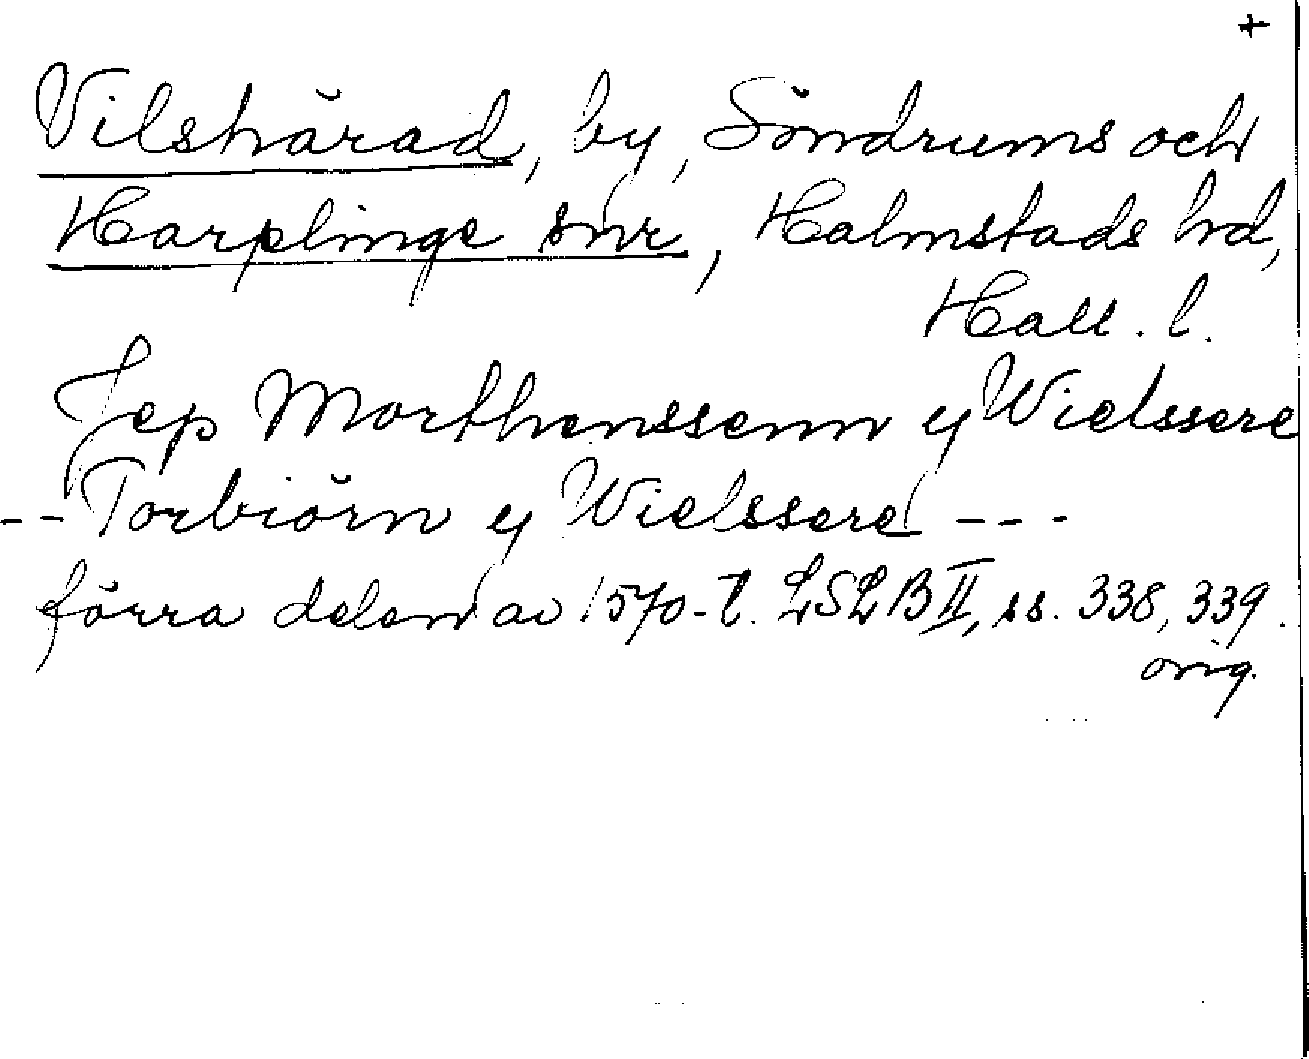 +
Vilshärad, by, Söndrums och
Harplinge snr, Halmstads hd,
Hall. l.
Jep Morthenssenn y Wielssere
-- Torbiörn y Wielssere ---
förra delen av 1570-t. LSLB II, ss. 338, 339.
orig.